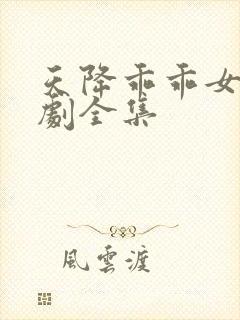 天降乖乖女
劇全集
風雲渡